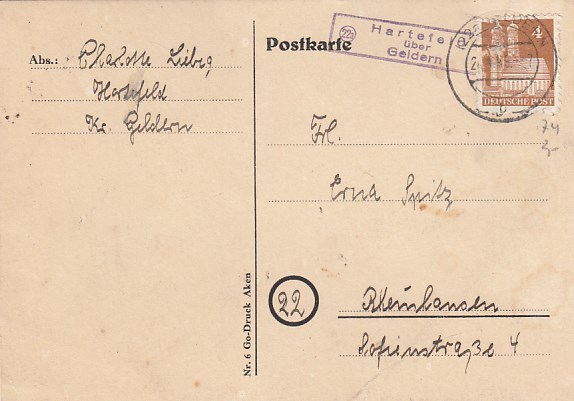 Abs.: Charlotte Liebig
Hartefeld
Kr. Geldern
Postkarte
22a
Hartefe
über
Geldern
4
DEUTSCHE POST
b
74
3,-
Frl.
Erna Spitz
22
Rheinhausen
Sofienstraße 4
Nr. 6 Go-Druck Aken